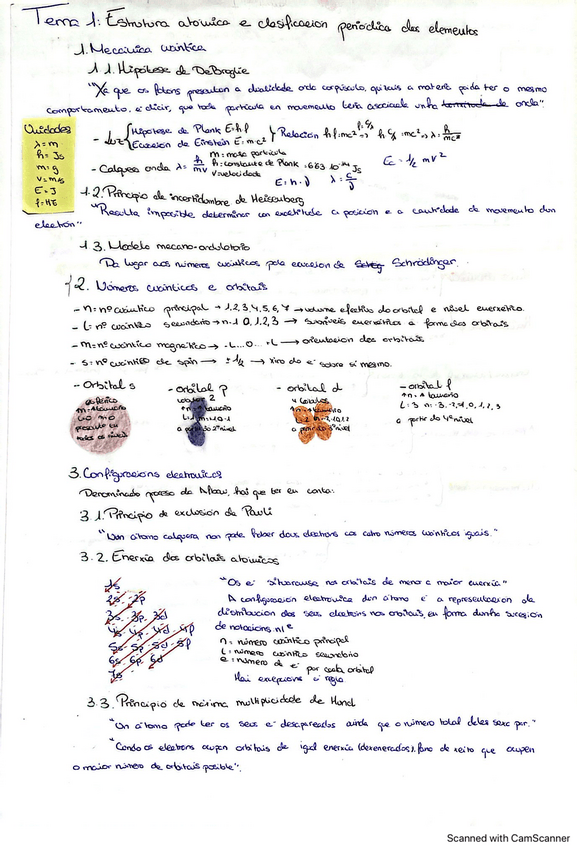 Tema 1: Estrutura atómica e clasificación periódica dos elementos
1. Mecánica cuántica
1.1. Hipótese de DeBroglie
"Xa que os fotóns presentan a dualidade onda corpúsculo, quizais a materia poida ter o mesmo
comportamento, é dicir, que toda partícula en movemento leva asociada unha de onda"
Unidades
λ = m
h = Js
m = g
v = m/s
E = J
f = HZ
- luz { Hipótese de Plank E=h·f
Ecuación de Einstein E = mc² } Relación hf = mc²
- Calquera onda λ = h/mv
m = masa partícula
h = constante de Plank = 6'63·10⁻³⁴ Js
v = velocidade
Ec = 1/2 mv²
1.2. Principio de incertidumbre de Heisenberg
"Resulta imposible determinar con exactitude a posición e a cantidade de movemento dun
electrón"
1.3. Modelo mecano-ondulatorio
Da lugar aos números cuánticos pola ecuación de Schrödinger.
2. Números cuánticos e orbitais
- n = nº cuántico principal → 1, 2, 3, 4, 5, 6, 7 → volume efectivo do orbital e nivel enerxético.
- L = nº cuántico secundario → n-1 0, 1, 2, 3 → subniveis enerxéticos e forma dos orbitais
- m = nº cuántico magnético → -L...0...+L → orientación dos orbitais
- s = nº cuántico de spin → ± 1/2 → xiro do e⁻ sobre si mesmo.
- Orbital s
- orbital p
- orbital d
- orbital f
esférico
n = tamaño
L=0 m=0
presente en
todos os niveis
lóbulos 2
n = tamaño
L=1 m=-1,0,1
a partir do 2º nivel
4 lóbulos
n = tamaño
L=2 m=-2,-1,0,1,2
a partir do 3º nivel
n = tamaño
L = 3 m = -3, -2, -1, 0, 1, 2, 3
a partir do 4º nivel
3. Configuracións electrónicas
Denominado proceso de Aufbau, hai que ter en conta:
3.1. Principio de exclusión de Pauli
"Nun átomo calquera non pode haber dous electróns cos catro números cuánticos iguais."
3.2. Enerxía dos orbitais atómicos
1s
2s 2p
3s 3p 3d
4s 4p 4d 4f
5s 5p 5d 5f
6s 6p 6d
7s
"Os e⁻ sitúanse nos orbitais de menor a maior enerxía"
A configuración electrónica dun átomo é a representación da
distribución dos seus electróns nos orbitais, en forma dunha sucesión
de notacións nlᵉ
n = número cuántico principal
L = número cuántico secundario
e = número de e⁻ por cada orbital
Hai excepcións á regra
3.3. Principio de máxima multiplicidade de Hund
"Un átomo pode ter os seus e⁻ desapareados aínda que o número total deles sexa par."
"Cando os electróns ocupan orbitais de igual enerxía (dexenerados), fano de xeito que ocupen
o maior número de orbitais posible".
Scanned with CamScanner